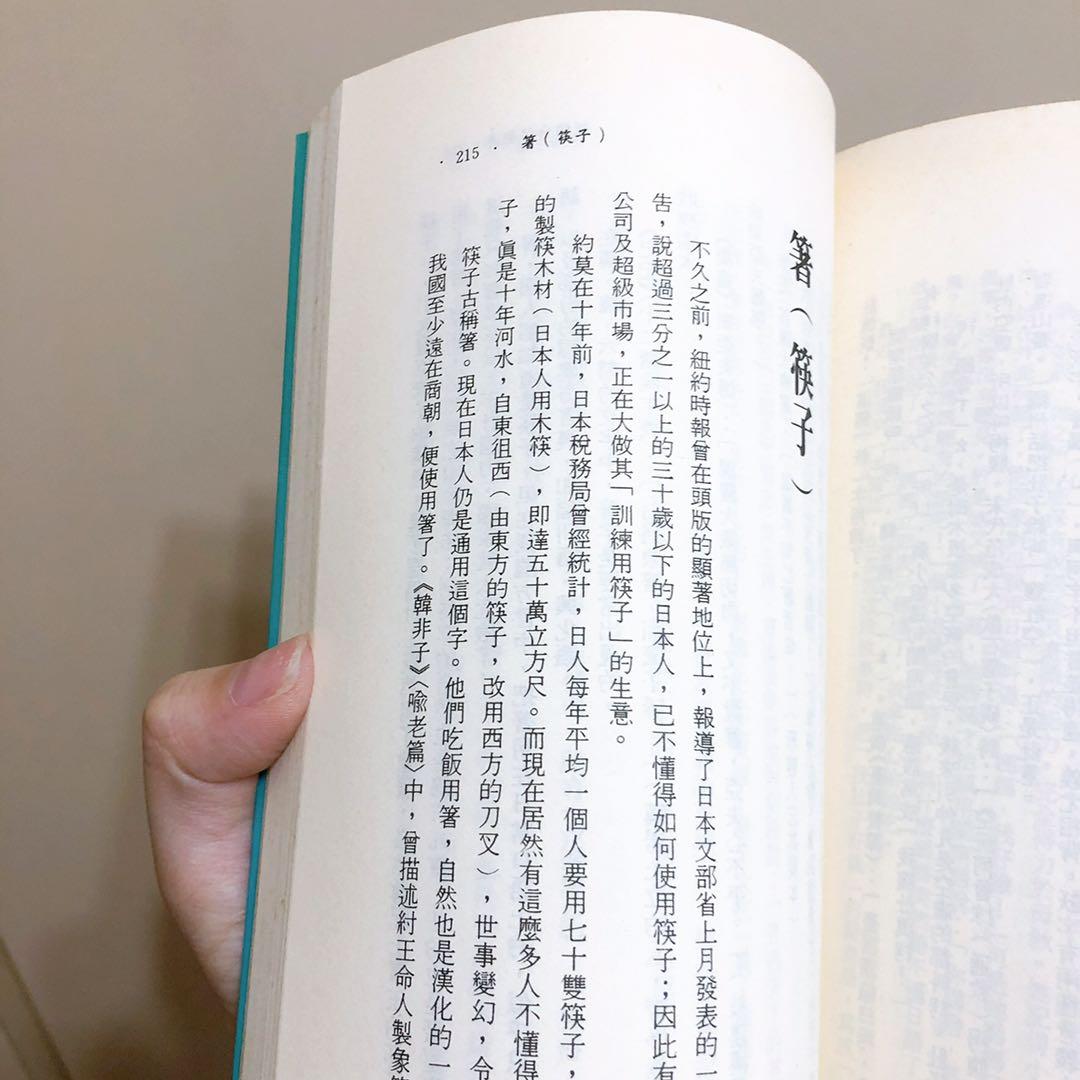 · 215 · 箸（筷子）
箸（筷子）
不久之前，紐約時報曾在頭版的顯著地位上，報導了日本文部省上月發表的一
告，說超過三分之一以上的三十歲以下的日本人，已不懂得如何使用筷子；因此有
公司及超級市場，正在大做其「訓練用筷子」的生意。
約莫在十年前，日本稅務局曾經統計，日人每年平均一個人要用七十雙筷子，
的製筷木材（日本人用木筷），即達五十萬立方尺。而現在居然有這麼多人不懂得
子，眞是十年河水，自東徂西（由東方的筷子，改用西方的刀叉），世事變幻，令
筷子古稱箸。現在日本人仍是通用這個字。他們吃飯用箸，自然也是漢化的一
我國至少遠在商朝，便使用箸了。《韓非子》〈喩老篇〉中，曾描述紂王命人製象